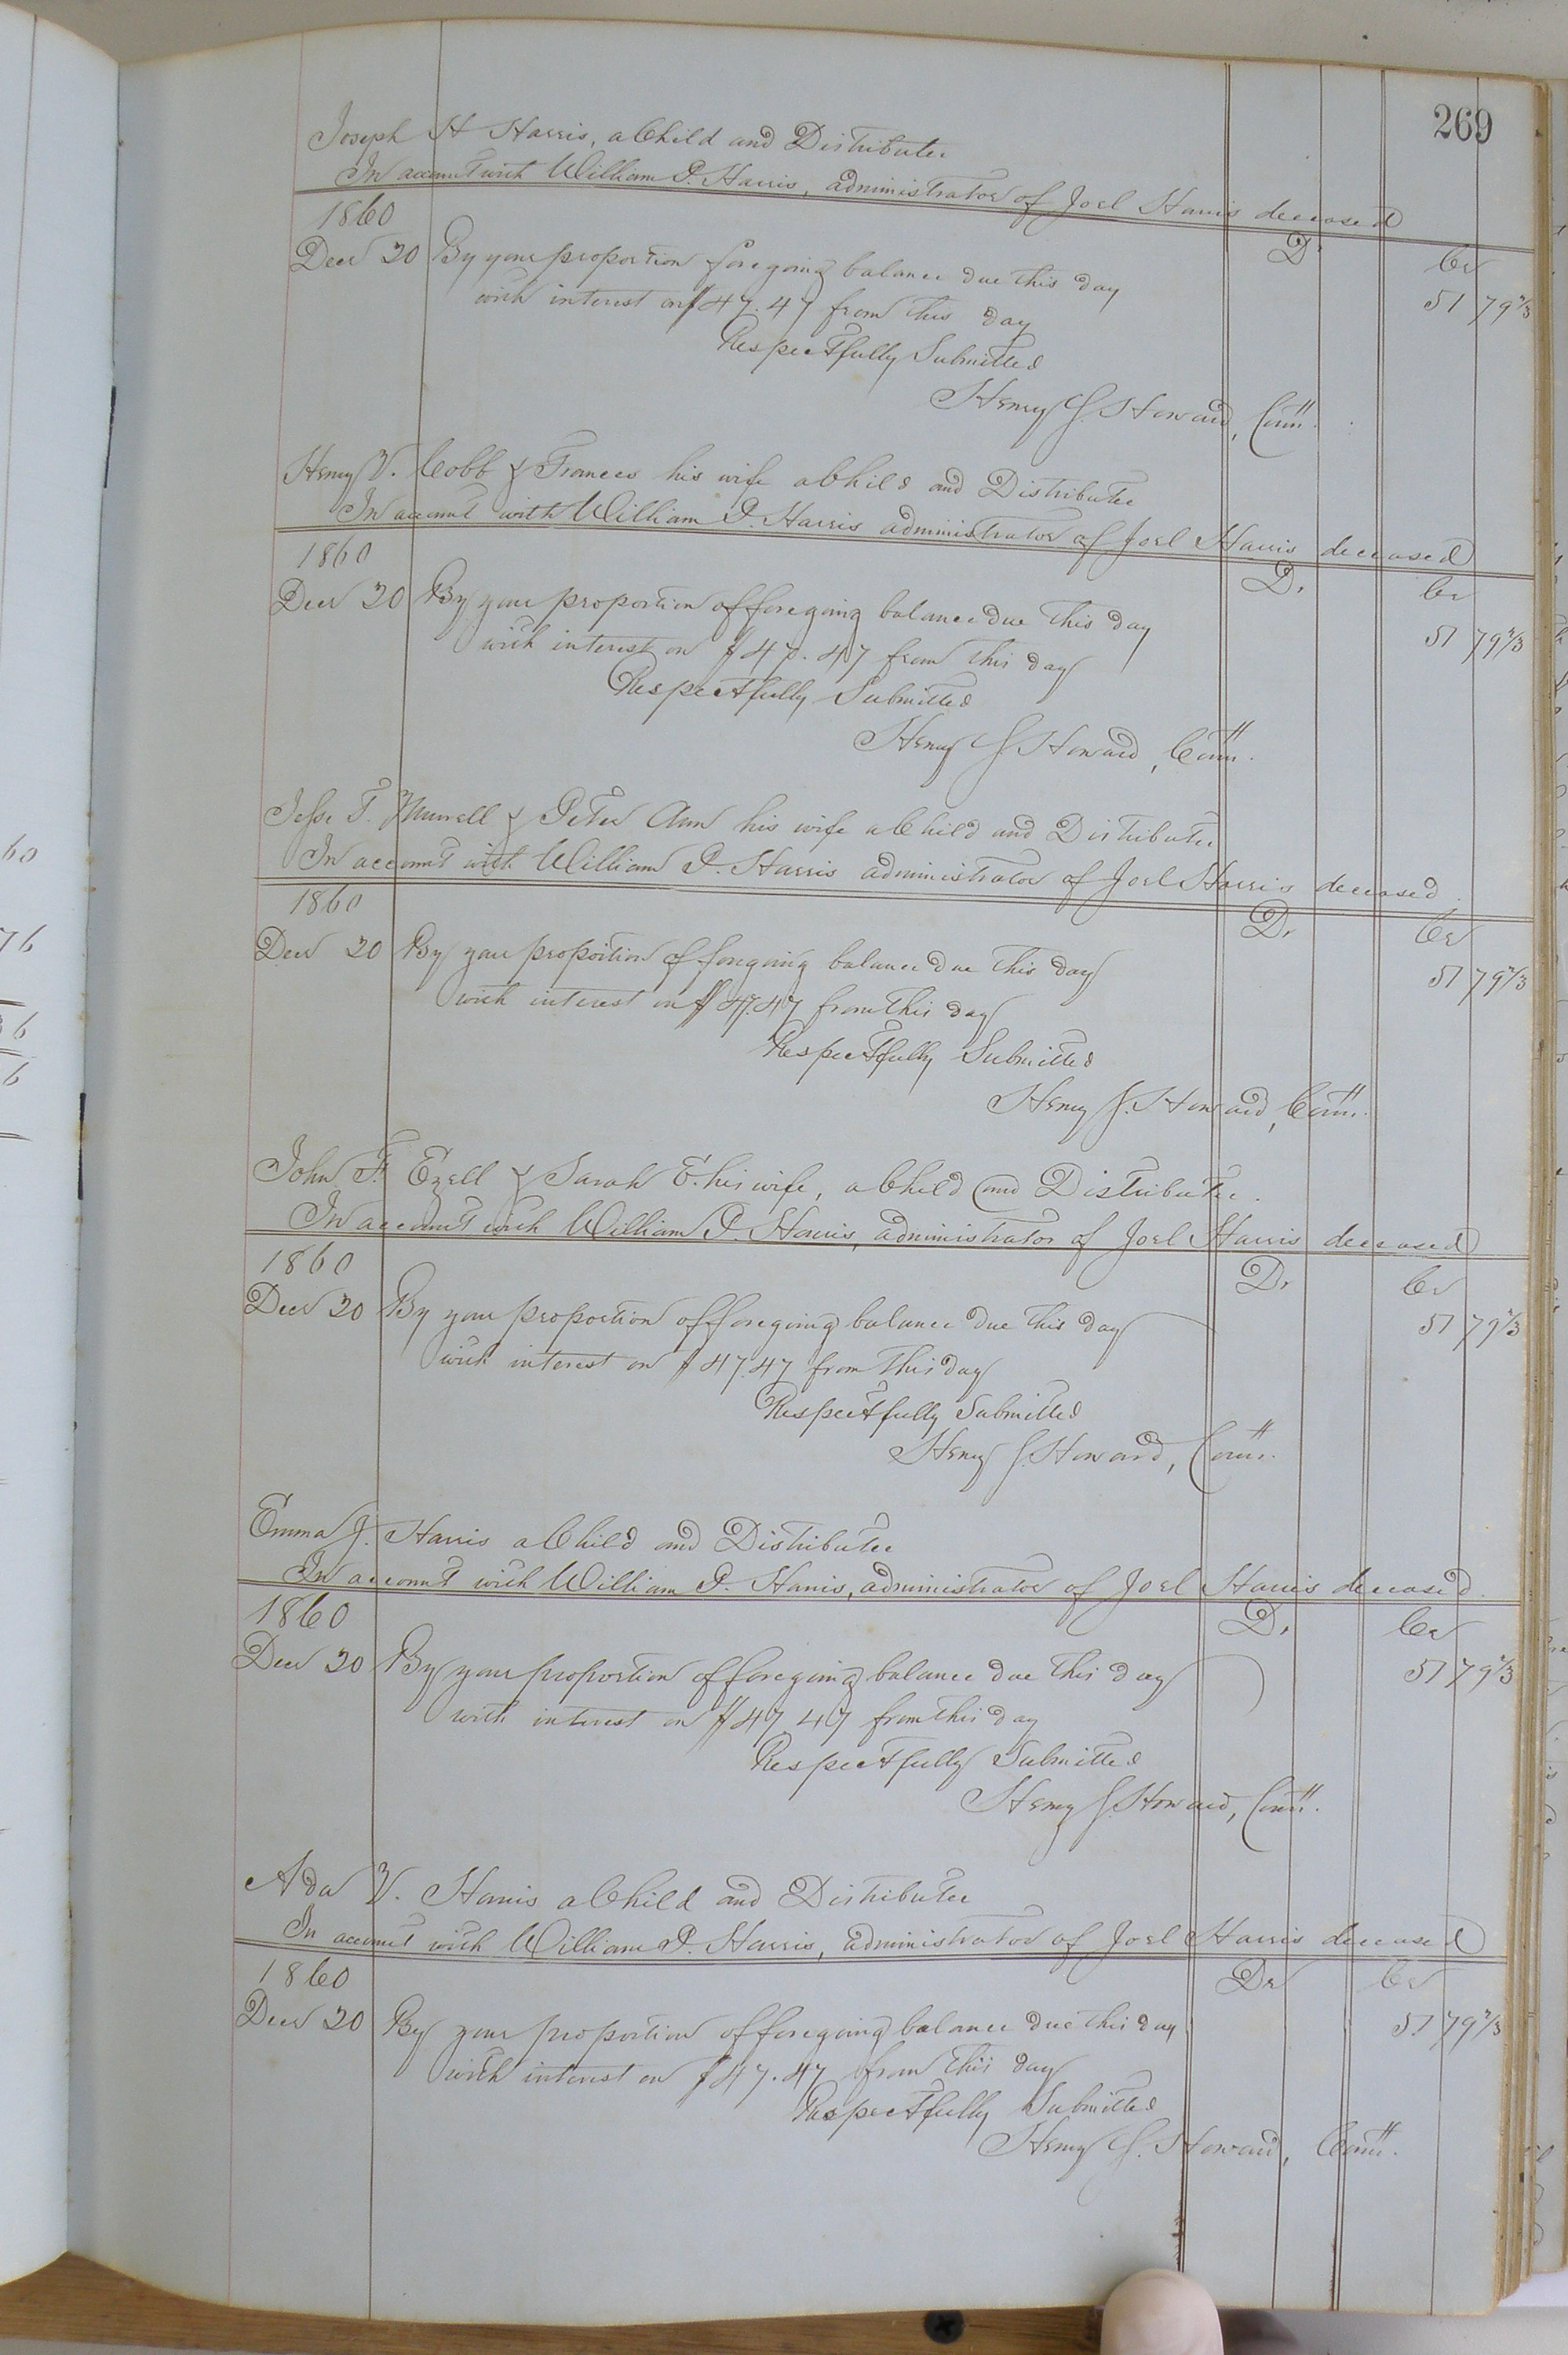 269
Joseph H Harris, a Child and Distributee
In account with William P. Harris, administrator of Joel Harris deceased
1860 Dr Cr
Decr 20 By your proportion foregoing balance due this day 51 79 2/3
with interest on $47.47 from this day
Respectfully Submitted
Henry J. Howard, Comr.
Henry V. Cobb & Frances his wife a Child and Distributee
In account with William P. Harris administrator of Joel Harris deceased
1860 Dr Cr
Decr 20 By your proportion of foregoing balance due this day 51 79 2/3
with interest on $47.47 from this day
Respectfully Submitted
Henry J. Howard, Comr.
Jesse T. Murrell & Peter Ann his wife a Child and Distributee
In account with William P. Harris administrator of Joel Harris deceased.
1860 Dr Cr
Decr 20 By your proportion of foregoing balance due this day 51 79 2/3
with interest on $47.47 from this day
Respectfully Submitted
Henry J. Howard, Comr.
John F. Ezell & Sarah E. his wife, a Child and Distributee.
In account with William P. Harris, administrator of Joel Harris deceased
1860 Dr Cr
Decr 20 By your proportion of foregoing balance due this day 51 79 2/3
with interest on $47.47 from this day
Respectfully Submitted
Henry J. Howard, Comr.
Emma J. Harris a Child and Distributee
In account with William P. Harris, administrator of Joel Harris deceased.
1860 Dr Cr
Decr 20 By your proportion of foregoing balance due this day 51 79 2/3
with interest on $47.47 from this day
Respectfully Submitted
Henry J. Howard, Comr.
Ada V. Harris a Child and Distributee
In account with William P. Harris, administrator of Joel Harris deceased
1860 Dr Cr
Decr 20 By your proportion of foregoing balance due this day 51 79 2/3
with interest on $47.47 from this day
Respectfully Submitted
Henry J. Howard, Comr.